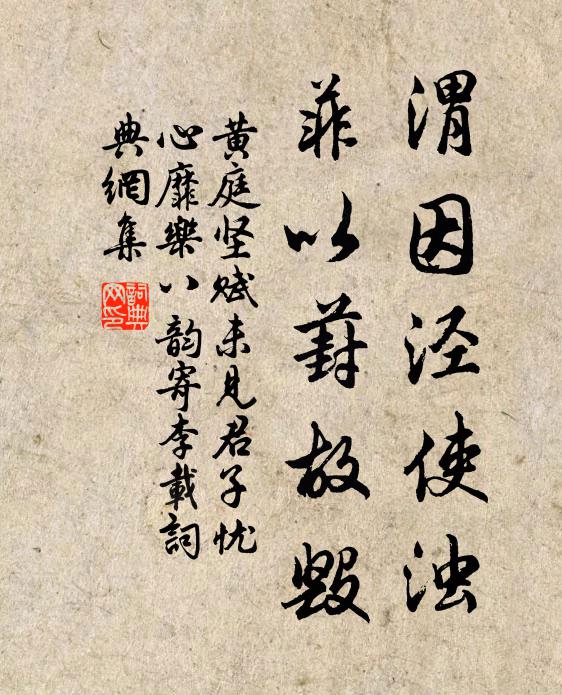 渭因泾使浊
菲以葑故毁
黄庭坚赋未见君子忧
心靡樂八韵寄李載詞
典網集
詞典
网印